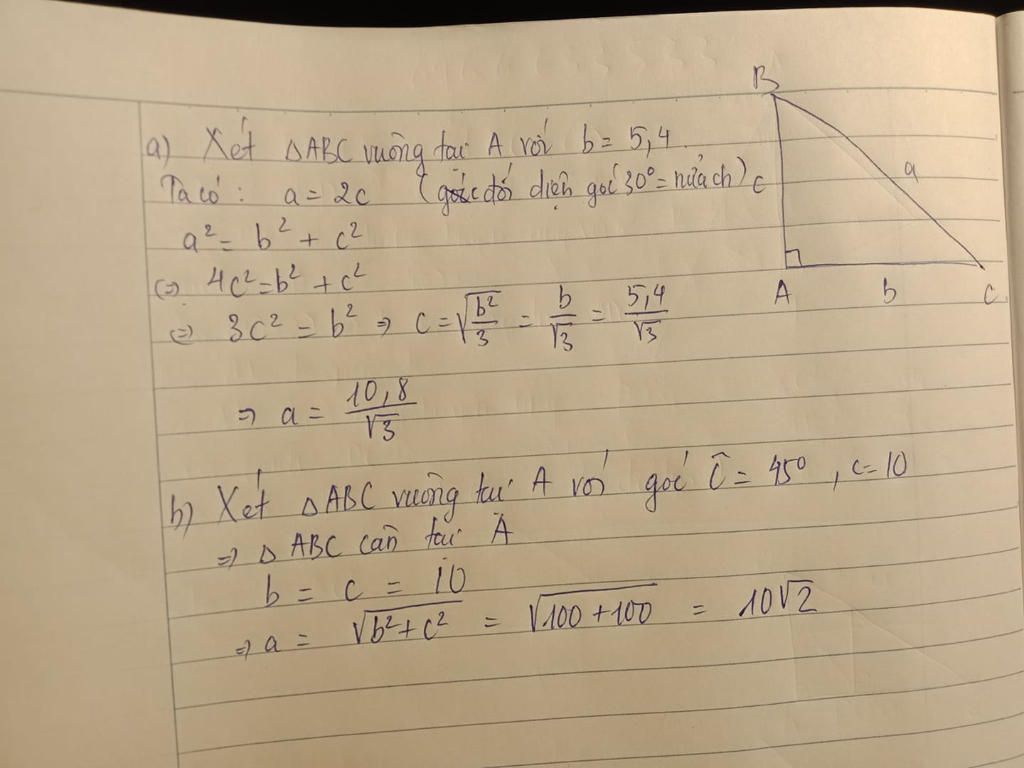 a) Xét △ABC vuông tại A với b = 5,4
Ta có: a = 2c (góc đối diện góc 30° = nửa ch)
a² = b² + c²
(=) 4c² = b² + c²
(=) 3c² = b² => c = √(b²/3) = b/√3 = 5,4/√3
=> a = 10,8/√3
b) Xét △ABC vuông tại A với góc Ĉ = 45°, c = 10
=> △ABC cân tại A
b = c = 10
=> a = √(b² + c²) = √(100 + 100) = 10√2
B
c
a
A
b
C